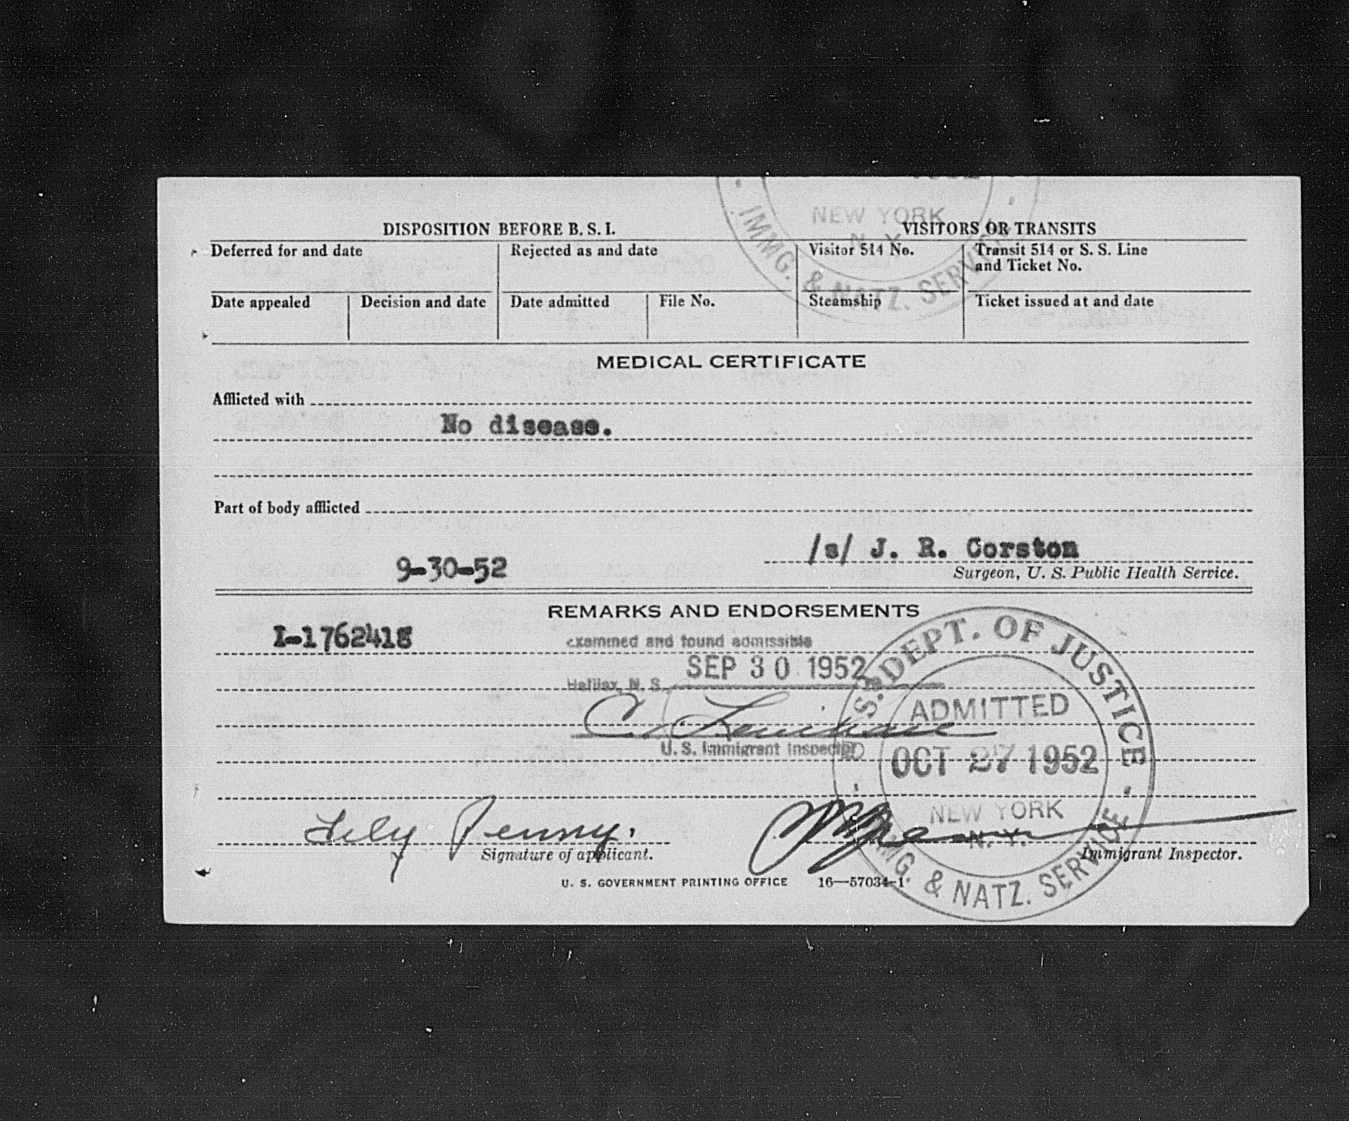 DISPOSITION BEFORE B. S. I.
VISITORS OR TRANSITS
Deferred for and date
Rejected as and date
Visitor 514 No.
Transit 514 or S. S. Line
and Ticket No.
Date appealed
Decision and date
Date admitted
File No.
Steamship
Ticket issued at and date
NEW YORK
N. Y.
IMMG. & NATZ. SERVICE
MEDICAL CERTIFICATE
Afflicted with
No disease.
Part of body afflicted
9-30-52
/s/ J. R. Corston
Surgeon, U. S. Public Health Service.
REMARKS AND ENDORSEMENTS
I-1762418
examined and found admissible
SEP 30 1952
Halifax, N. S.
C.
U. S. Immigrant Inspector
S. DEPT. OF JUSTICE
ADMITTED
OCT 27 1952
NEW YORK
N. Y.
IMMG. & NATZ. SERVICE
Lily Penny.
Signature of applicant.
Immigrant Inspector.
U. S. GOVERNMENT PRINTING OFFICE 16—57034-1